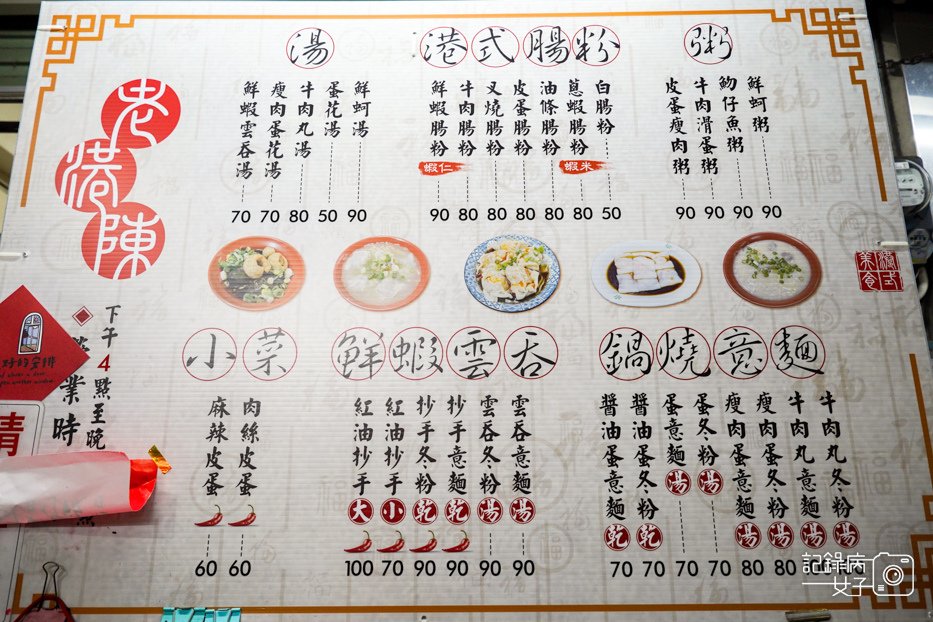 老港陳
湯
鮮蝦雲吞湯 70
瘦肉蛋花湯 70
牛肉丸湯 80
蛋花湯 50
鮮蚵湯 90
港式腸粉
鮮蝦腸粉 蝦仁 90
牛肉腸粉 80
叉燒腸粉 80
皮蛋腸粉 80
油條腸粉 80
蔥蝦腸粉 蝦米 80
白腸粉 50
粥
皮蛋瘦肉粥 90
牛肉滑蛋粥 90
魩仔魚粥 90
鮮蚵粥 90
港式美食
業時
下午4點至晚
的安排
請
小菜
麻辣皮蛋 60
肉絲皮蛋 60
鮮蝦雲吞
紅油抄手 大 100
紅油抄手 小 70
抄手冬粉 乾 90
抄手意麵 乾 90
雲吞冬粉 湯 90
雲吞意麵 湯 90
鍋燒意麵
醬油蛋意麵 乾 70
醬油蛋冬粉 乾 70
蛋意麵 湯 70
蛋冬粉 湯 70
瘦肉蛋意麵 湯 80
瘦肉蛋冬粉 湯 80
牛肉丸意麵 湯
牛肉丸冬粉 湯
記錄病女子